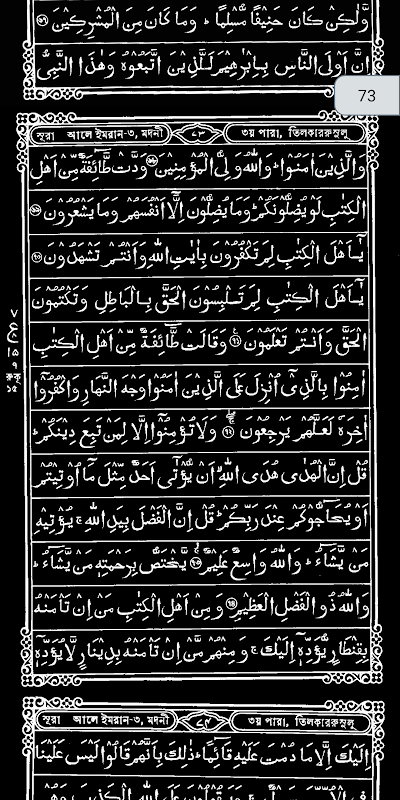 وَّلٰكِنْ كَانَ حَنِيْفًا مُّسْلِمًا ؕ وَمَا كَانَ مِنَ الْمُشْرِكِيْنَ ۝
اِنَّ اَوْلَى النَّاسِ بِاِبْرٰهِيْمَ لَلَّذِيْنَ اتَّبَعُوْهُ وَهٰذَا النَّبِىُّ
73
সূরা আলে ইমরান-৩, মদনী ৭৩ ৩য় পারা, তিলকাররুসুলু
وَالَّذِيْنَ اٰمَنُوْا ؕ وَاللّٰهُ وَلِىُّ الْمُؤْمِنِيْنَ ۝ وَدَّتْ طَّآئِفَةٌ مِّنْ اَهْلِ
الْكِتٰبِ لَوْ يُضِلُّوْنَكُمْ ؕ وَمَا يُضِلُّوْنَ اِلَّاۤ اَنْفُسَهُمْ وَمَا يَشْعُرُوْنَ ۝
يٰۤاَهْلَ الْكِتٰبِ لِمَ تَكْفُرُوْنَ بِاٰيٰتِ اللّٰهِ وَاَنْتُمْ تَشْهَدُوْنَ ۝
يٰۤاَهْلَ الْكِتٰبِ لِمَ تَلْبِسُوْنَ الْحَقَّ بِالْبَاطِلِ وَتَكْتُمُوْنَ
الْحَقَّ وَاَنْتُمْ تَعْلَمُوْنَ ۝ وَقَالَتْ طَّآئِفَةٌ مِّنْ اَهْلِ الْكِتٰبِ
اٰمِنُوْا بِالَّذِىْۤ اُنْزِلَ عَلَى الَّذِيْنَ اٰمَنُوْا وَجْهَ النَّهَارِ وَاكْفُرُوْۤا
اٰخِرَهٗ لَعَلَّهُمْ يَرْجِعُوْنَ ۝ وَلَا تُؤْمِنُوْۤا اِلَّا لِمَنْ تَبِعَ دِيْنَكُمْ ؕ
قُلْ اِنَّ الْهُدٰى هُدَى اللّٰهِ ۙ اَنْ يُّؤْتٰٓى اَحَدٌ مِّثْلَ مَاۤ اُوْتِيْتُمْ
اَوْ يُحَآجُّوْكُمْ عِنْدَ رَبِّكُمْ ؕ قُلْ اِنَّ الْفَضْلَ بِيَدِ اللّٰهِ ۚ يُؤْتِيْهِ
مَنْ يَّشَآءُ ؕ وَاللّٰهُ وَاسِعٌ عَلِيْمٌ ۝ يَّخْتَصُّ بِرَحْمَتِهٖ مَنْ يَّشَآءُ ؕ
وَاللّٰهُ ذُو الْفَضْلِ الْعَظِيْمِ ۝ وَمِنْ اَهْلِ الْكِتٰبِ مَنْ اِنْ تَاْمَنْهُ
بِقِنْطَارٍ يُّؤَدِّهٖۤ اِلَيْكَ ۚ وَمِنْهُمْ مَّنْ اِنْ تَاْمَنْهُ بِدِيْنَارٍ لَّا يُؤَدِّهٖۤ
সূরা আলে ইমরান-৩, মদনী ৭৪ ৩য় পারা, তিলকাররুসুলু
اِلَيْكَ اِلَّا مَا دُمْتَ عَلَيْهِ قَآئِمًا ؕ ذٰلِكَ بِاَنَّهُمْ قَالُوْا لَيْسَ عَلَيْنَا